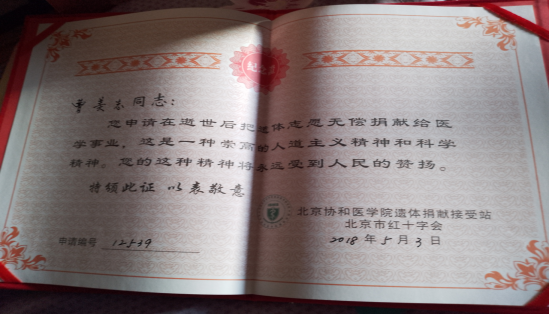 曹姜东同志：
您申请在逝世后把遗体志愿无偿捐献给医
学事业，这是一种崇高的人道主义精神和科学
精神。您的这种精神将永远受到人民的赞扬。
特颁此证 以表敬意
北京协和医学院遗体捐献接受站
北京市红十字会
申请编号 12539
2018年5月3日